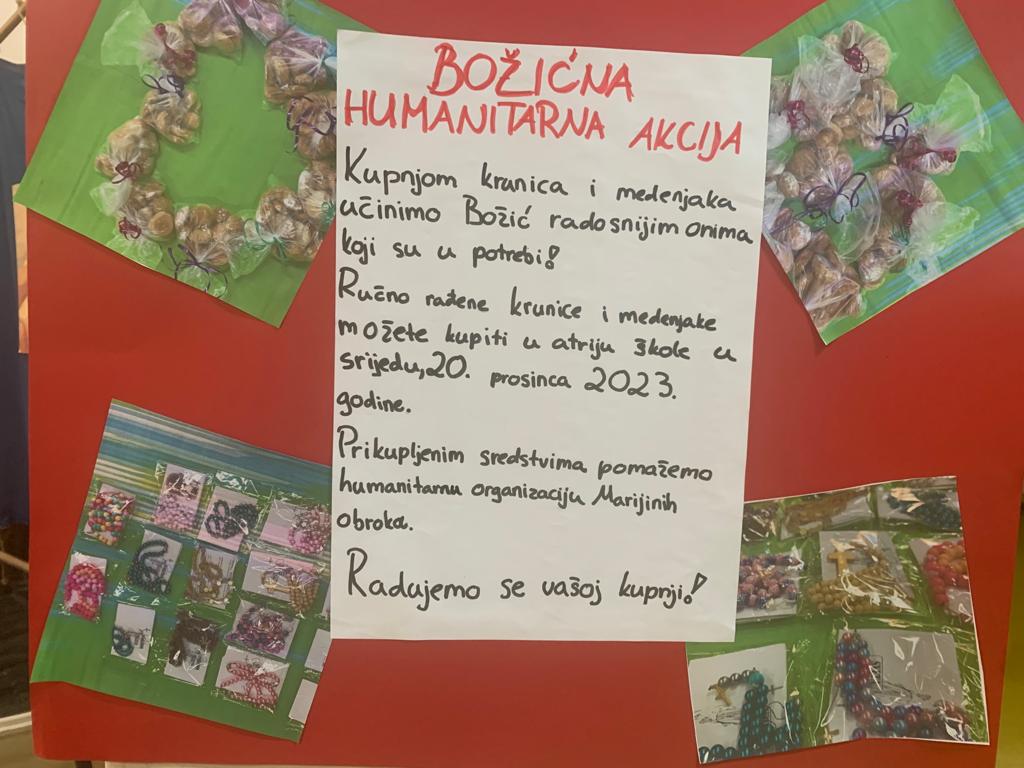 BOŽIĆNA
HUMANITARNA AKCIJA
Kupnjom krunica i medenjaka
učinimo Božić radosnijim onima
koji su u potrebi!
Ručno rađene krunice i medenjake
možete kupiti u atriju škole u
srijedu, 20. prosinca 2023.
godine.
Prikupljenim sredstvima pomažemo
humanitarnu organizaciju Marijinih
obroka.
Radujemo se vašoj kupnji!